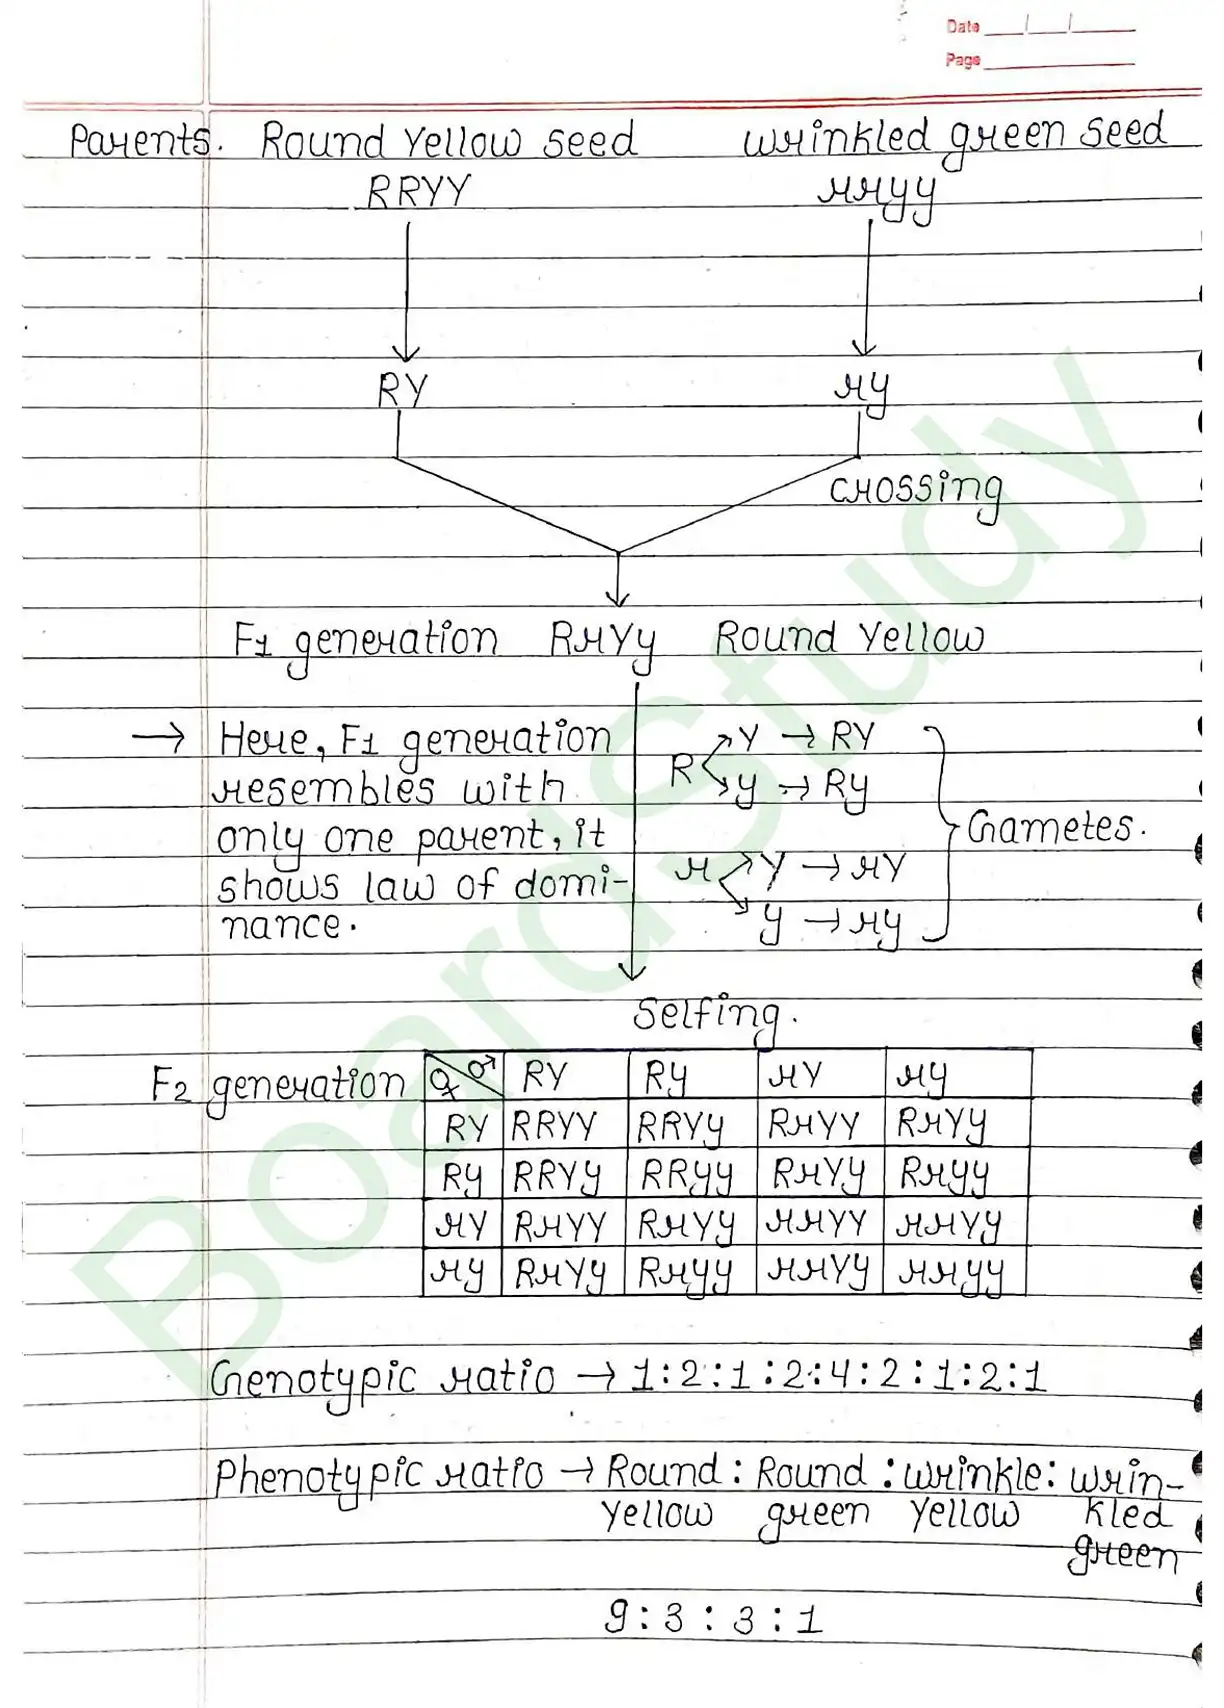 Date
Page
Parents. Round Yellow seed wrinkled green seed
RRYY rryy
RY ry
crossing
F1 generation RrYy Round Yellow
→ Here, F1 generation
resembles with
only one parent, it
shows law of domi-
nance.
R Y → RY
y → Ry
r Y → rY
y → ry
Gametes.
Selfing.
F2 generation ♀ ♂ RY Ry rY ry
RY RRYY RRYy RrYY RrYy
Ry RRYy RRyy RrYy Rryy
rY RrYY RrYy rrYY rrYy
ry RrYy Rryy rrYy rryy
Genotypic ratio → 1:2:1:2:4:2:1:2:1
Phenotypic ratio → Round : Round : wrinkle : wrin-
Yellow green Yellow kled
green
9:3:3:1
BoardStudy